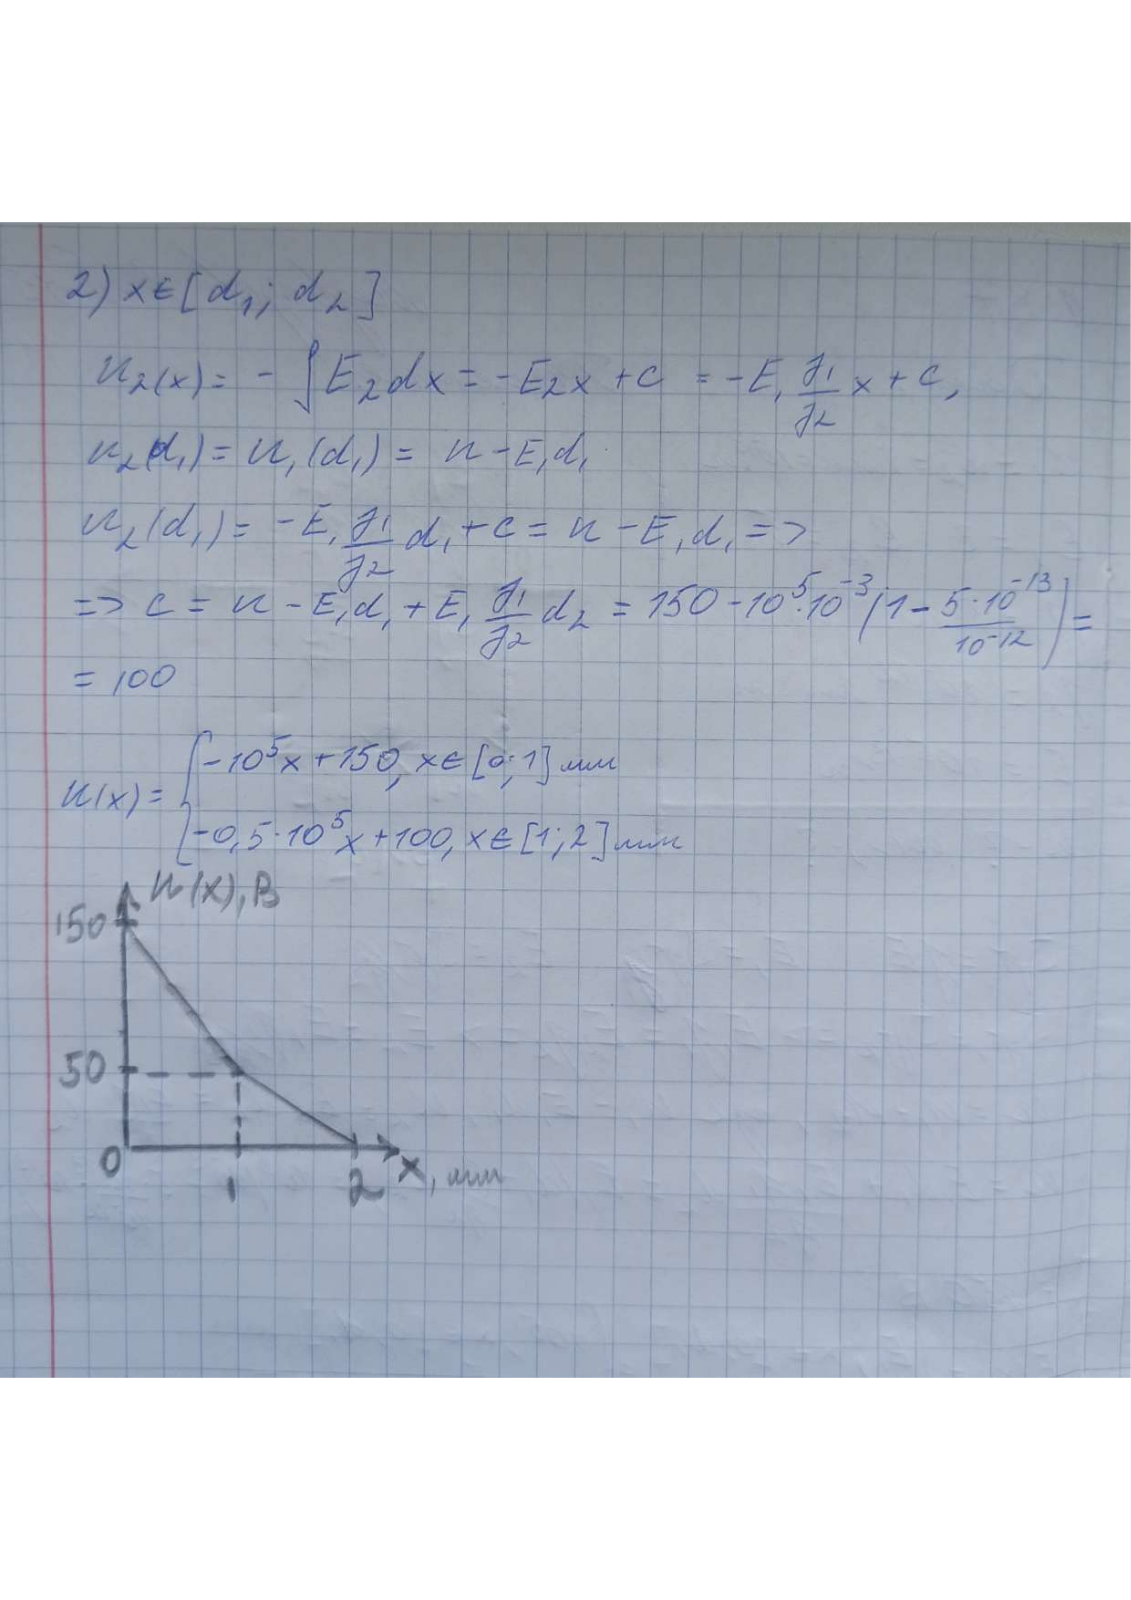 2) x∈[d₁; d₂]
u₂(x) = - ∫E₂dx = -E₂x + c = -E₁ γ₁/γ₂ x + c,
u₂(d₁) = u₁(d₁) = u - E₁d₁
u₂(d₁) = -E₁ γ₁/γ₂ d₁ + c = u - E₁d₁ =>
=> c = u - E₁d₁ + E₁ γ₁/γ₂ d₂ = 150 - 10⁵·10⁻³(1 - 5·10⁻¹³/10⁻¹²) =
= 100
u(x) = { -10⁵x + 150, x∈[0; 1] мм
-0,5·10⁵x + 100, x∈[1; 2] мм
u(x), В
150
50
0
1
2
x, мм